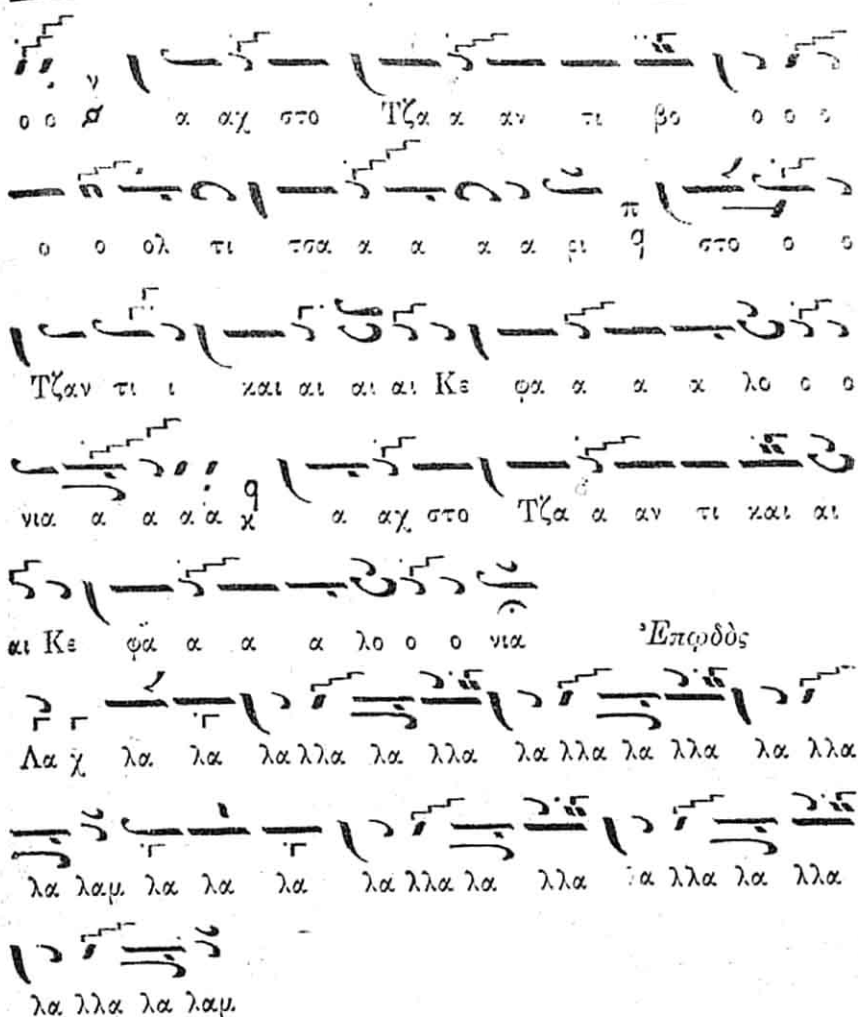 ο ο ν α αχ στο Τζα α αν τι βο ο ο ο
ο ο ολ τι τσα α α α α ρι π q στο ο ο
Τζαν τι ι και αι αι αι Κε φα α α α λο ο ο
νια α α α α q χ α αχ στο Τζα α αν τι και αι
αι Κε φα α α α λο ο ο νια Ἐπωδὸς
Λα χ λα λα λα λλα λα λλα λα λλα λα λλα λα λλα
λα λαμ. λα λα λα λα λλα λα λλα λλα λα λλα
λα λλα λα λαμ.